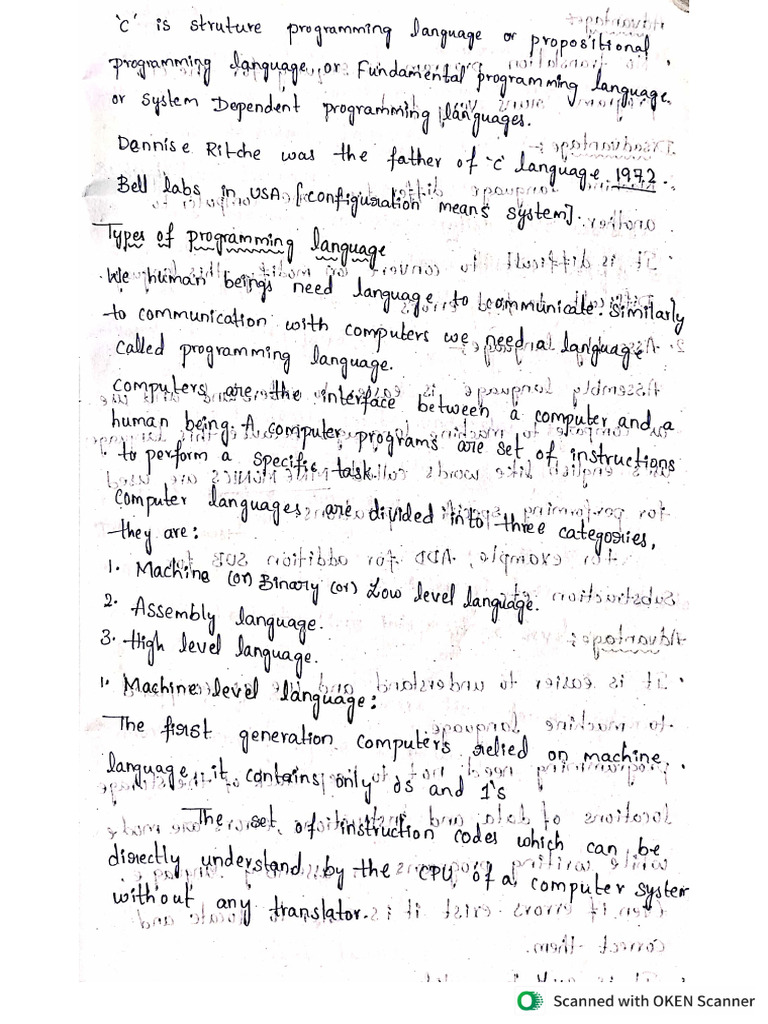 'C' is struture programming language or propositional
programming language, or Fundamental programming language.
or system Dependent programming languages.
Dennise Ritche was the father of 'c' language 1972.
Bell labs in USA [configuration means system].
Types of programming language
We human beings need language to communicate. Similarly
to communication with computers we need a language
called programming language.
computers are the interface between a computer and a
human being. A computer programs are set of instructions
to perform a specific task.
computer languages are divided into three categories,
they are:
1. Machine (or) Binary (or) Low level language.
2. Assembly language.
3. High level language.
1. Machine level language:
The first generation computers relied on machine
language, it contains only 0s and 1's
The set of instruction codes which can be
directly understand by the CPU of a computer system
without any translator.
Scanned with OKEN Scanner